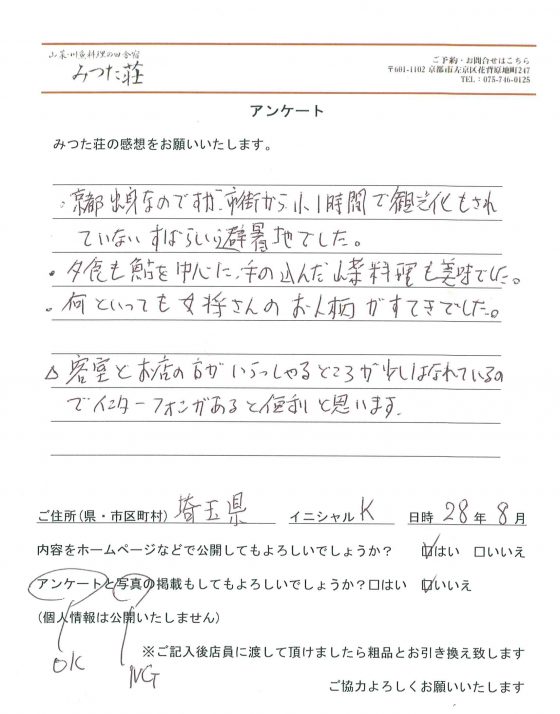 山菜・川魚料理の田舎宿
みつた荘
ご予約・お問合せはこちら
〒601-1102 京都市左京区花背原地町247
TEL：075-746-0125
アンケート
みつた荘の感想をお願いいたします。
・京都出身なのですが、市街から小1時間で観光化もされ
ていないすばらしい避暑地でした。
・夕食も鮎を中心に、手の込んだ山菜料理も美味でした。
・何といっても女将さんのお人柄がすてきでした。
△ 客室とお店の方がいらっしゃるところが少しはなれているの
でインターフォンがあると便利と思います.
ご住所(県・市区町村) 埼玉県 イニシャル K 日時 28 年 8 月
内容をホームページなどで公開してもよろしいでしょうか？ ☑はい □いいえ
アンケートと写真の掲載もしてもよろしいでしょうか？□はい ☑いいえ
(個人情報は公開いたしません)
OK NG
※ご記入後店員に渡して頂けましたら粗品とお引き換え致します
ご協力よろしくお願いいたします